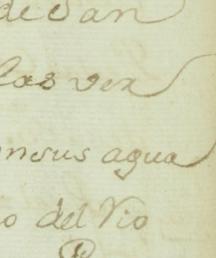 de San
las ver
en sus agua
o del Rio